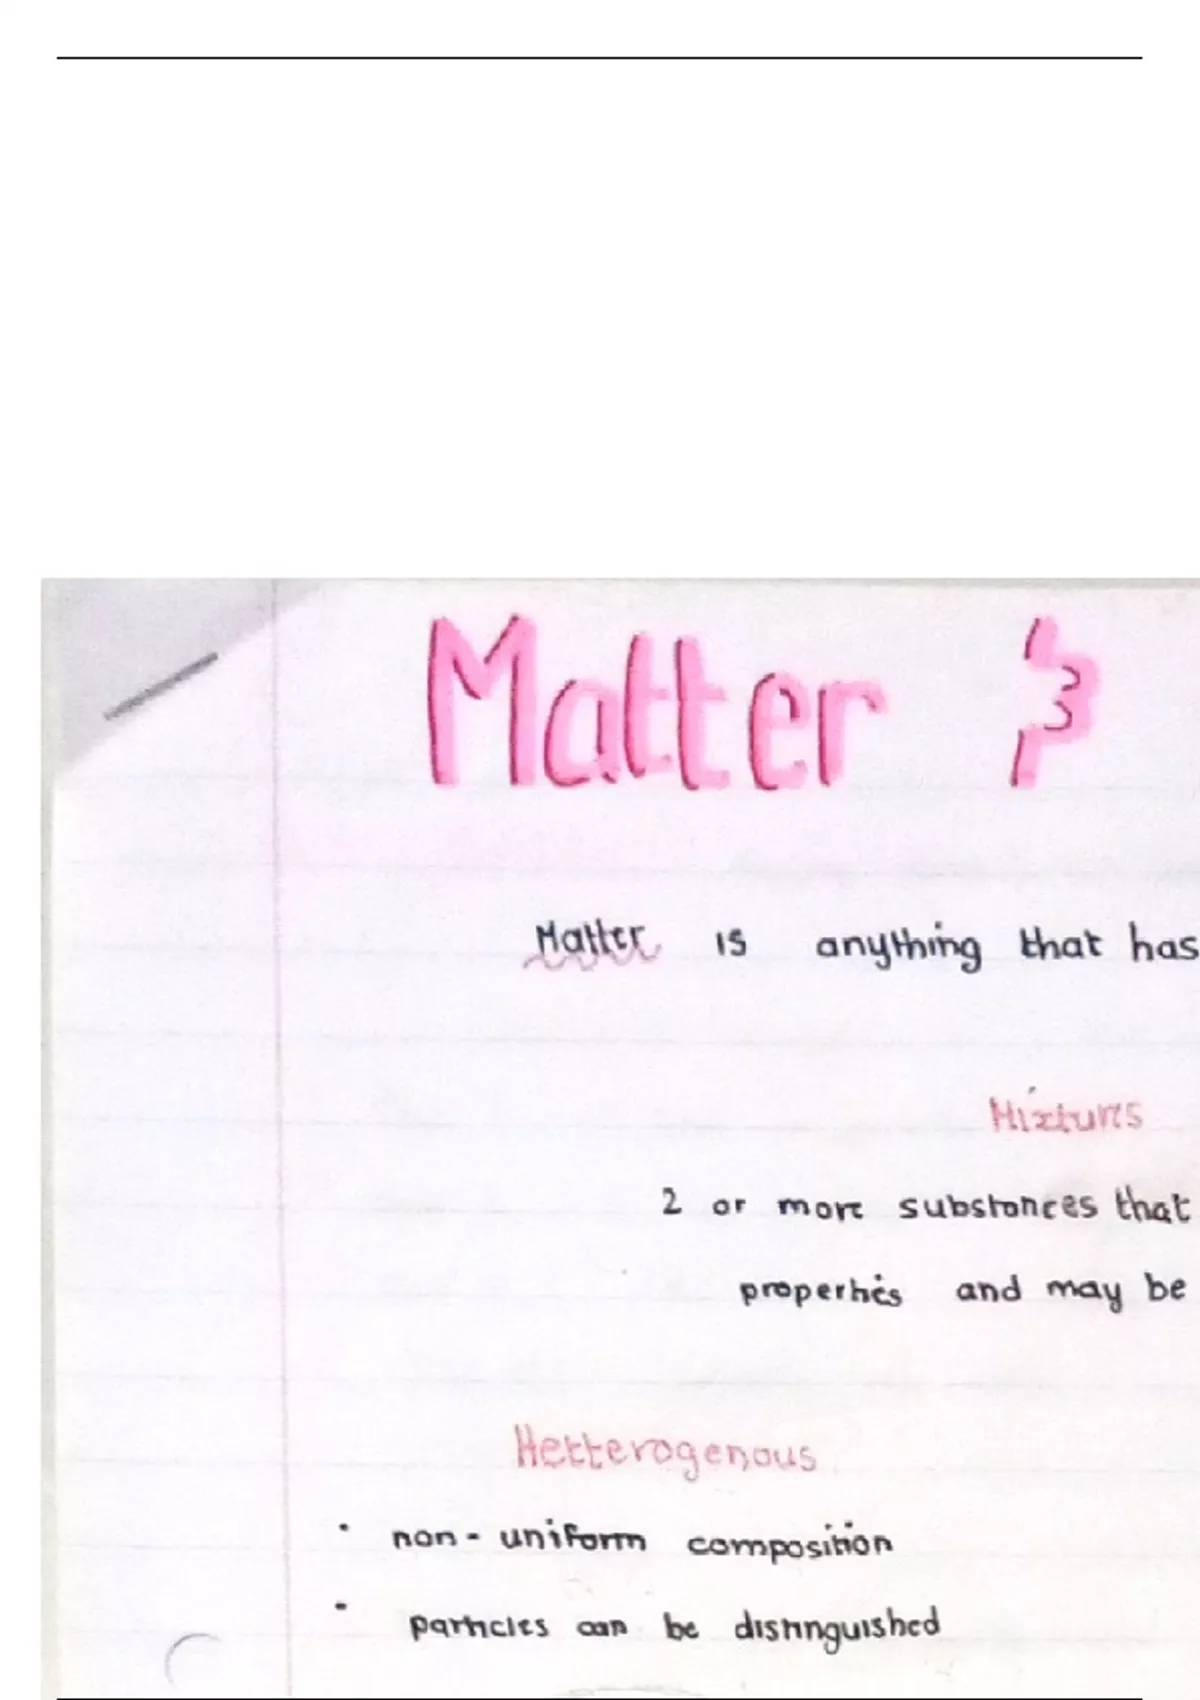 Matter &
Matter is anything that has
Mixtures
2 or more substances that
properties and may be
Hetterogenous
• non-uniform composition
• particles can be distinguished